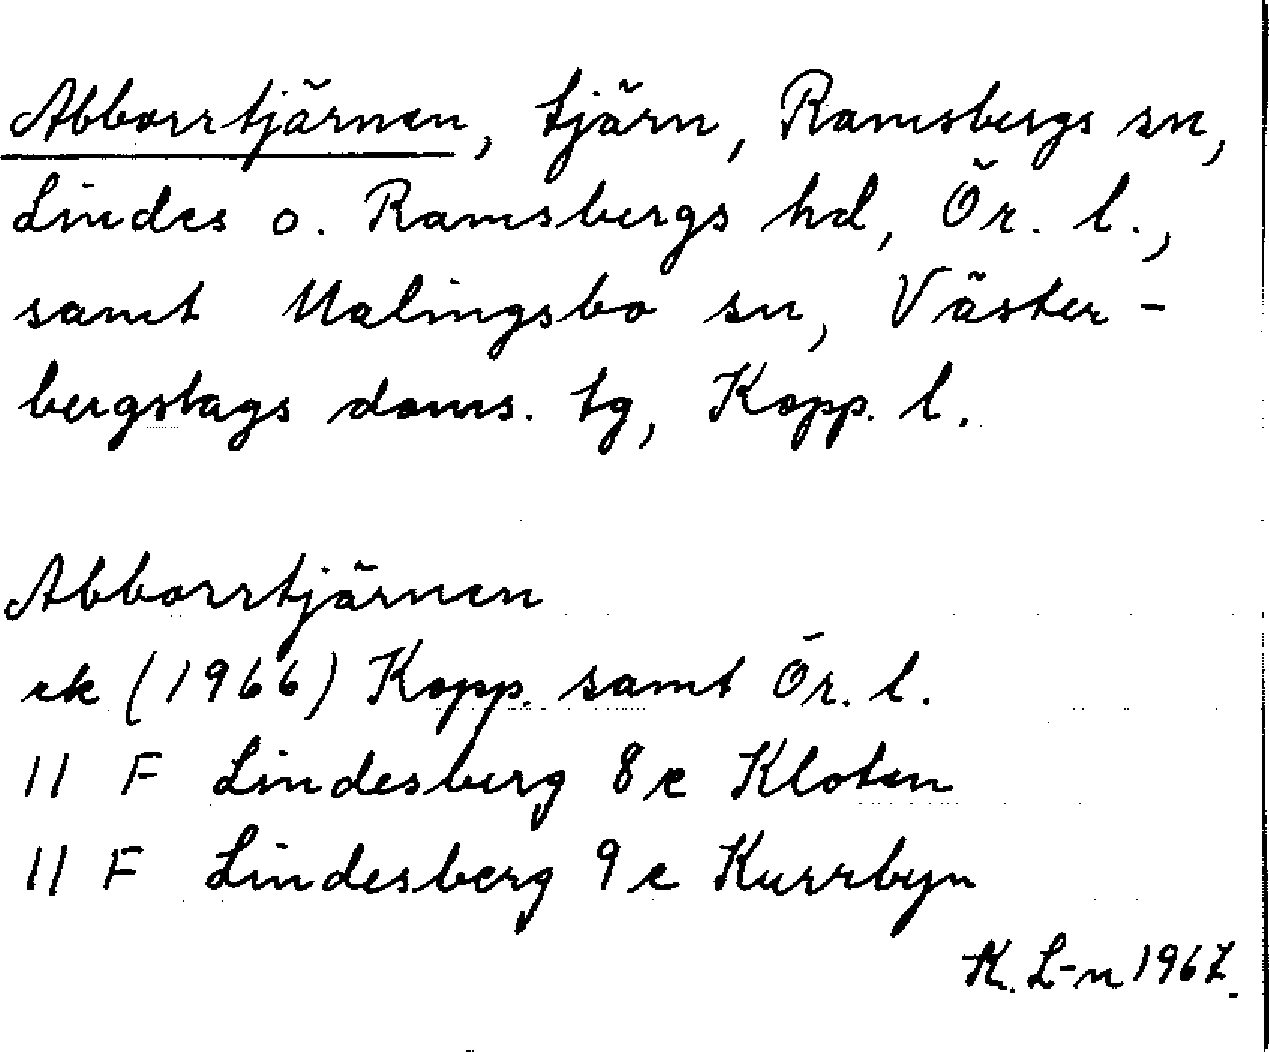 Abborrtjärnen, tjärn, Ramsbergs sn,
Lindes o. Ramsbergs hd, Ör. l.,
samt Malingsbo sn, Väster-
bergslags doms. tg, Kopp. l.
Abborrtjärnen
ek (1966) Kopp. samt Ör. l.
11 F Lindesberg 8 e Kloten
11 F Lindesberg 9 e Kurrbyn
K. L-n 1967.